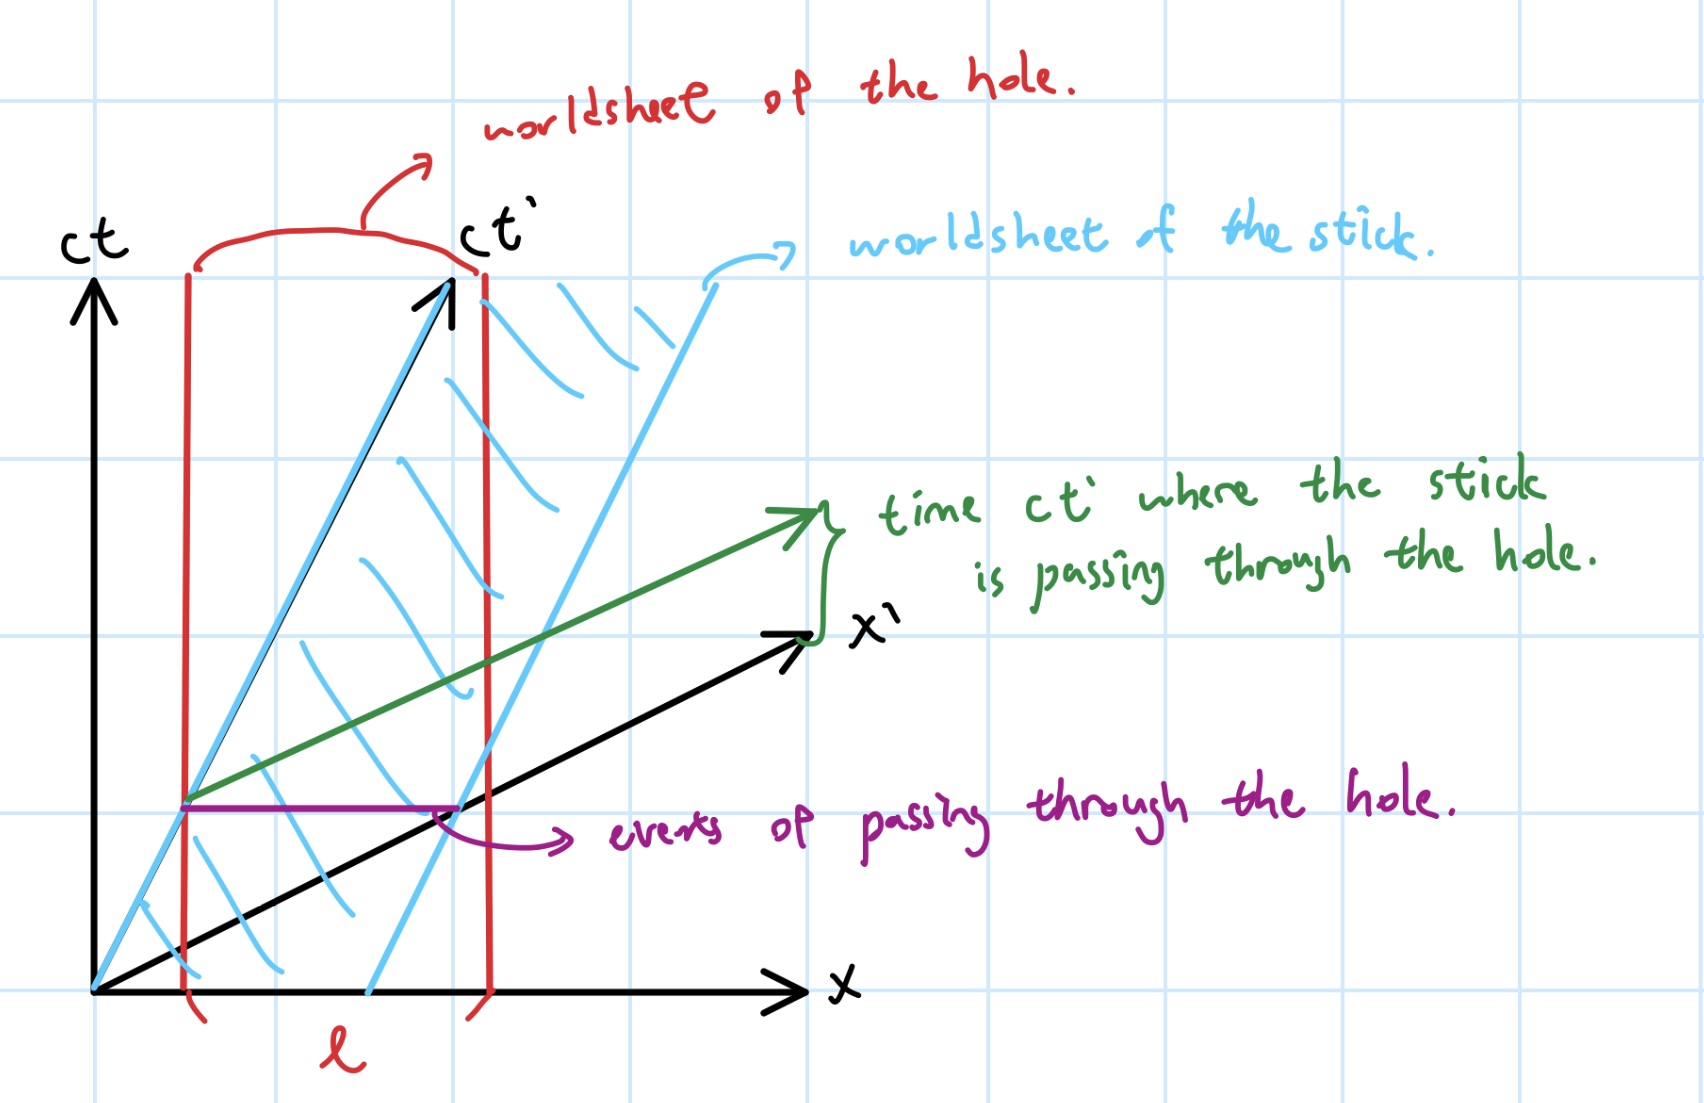 worldsheet of the hole.
ct
ct'
worldsheet of the stick.
time ct' where the stick
is passing through the hole.
x'
events of passing through the hole.
x
l